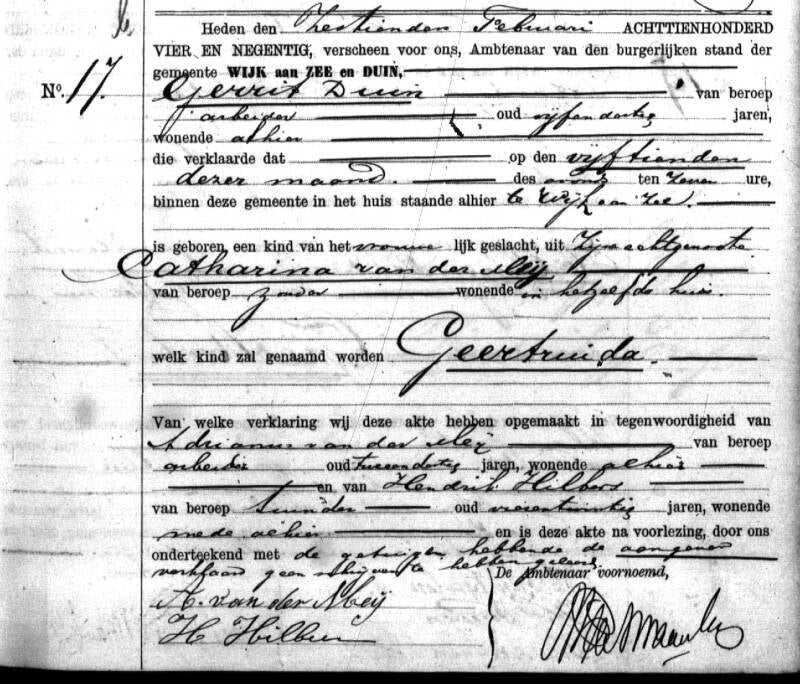 Heden den Zestienden Februari ACHTTIENHONDERD
VIER EN NEGENTIG, verscheen voor ons, Ambtenaar van den burgerlijken stand der
gemeente WIJK aan ZEE en DUIN,
No. 17. Gerrit Duin van beroep
arbeider oud vijfendertig jaren,
wonende alhier
die verklaarde dat op den vijftienden
dezer maand. des avonds ten zeven ure,
binnen deze gemeente in het huis staande alhier te Wijk aan Zee.
is geboren, een kind van het vrouwe lijk geslacht, uit zijne echtgenoote
Catharina van der Meij
van beroep zonder wonende in hetzelfde huis.
welk kind zal genaamd worden Geertruida.
Van welke verklaring wij deze akte hebben opgemaakt in tegenwoordigheid van
Adrianus van der Meij van beroep
arbeider oud tweeendertig jaren, wonende alhier
en van Hendrik Hilbers
van beroep tuinder oud vierentwintig jaren, wonende
mede alhier en is deze akte na voorlezing, door ons
onderteekend met de getuigen hebbende de aangever
verklaard geen schrijven te hebben geleerd.
De Ambtenaar voornoemd,
A. van der Meij
H Hilbers